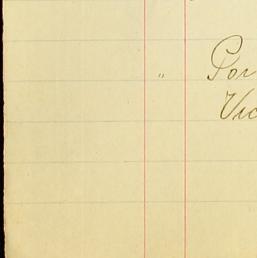 " Por
Vic